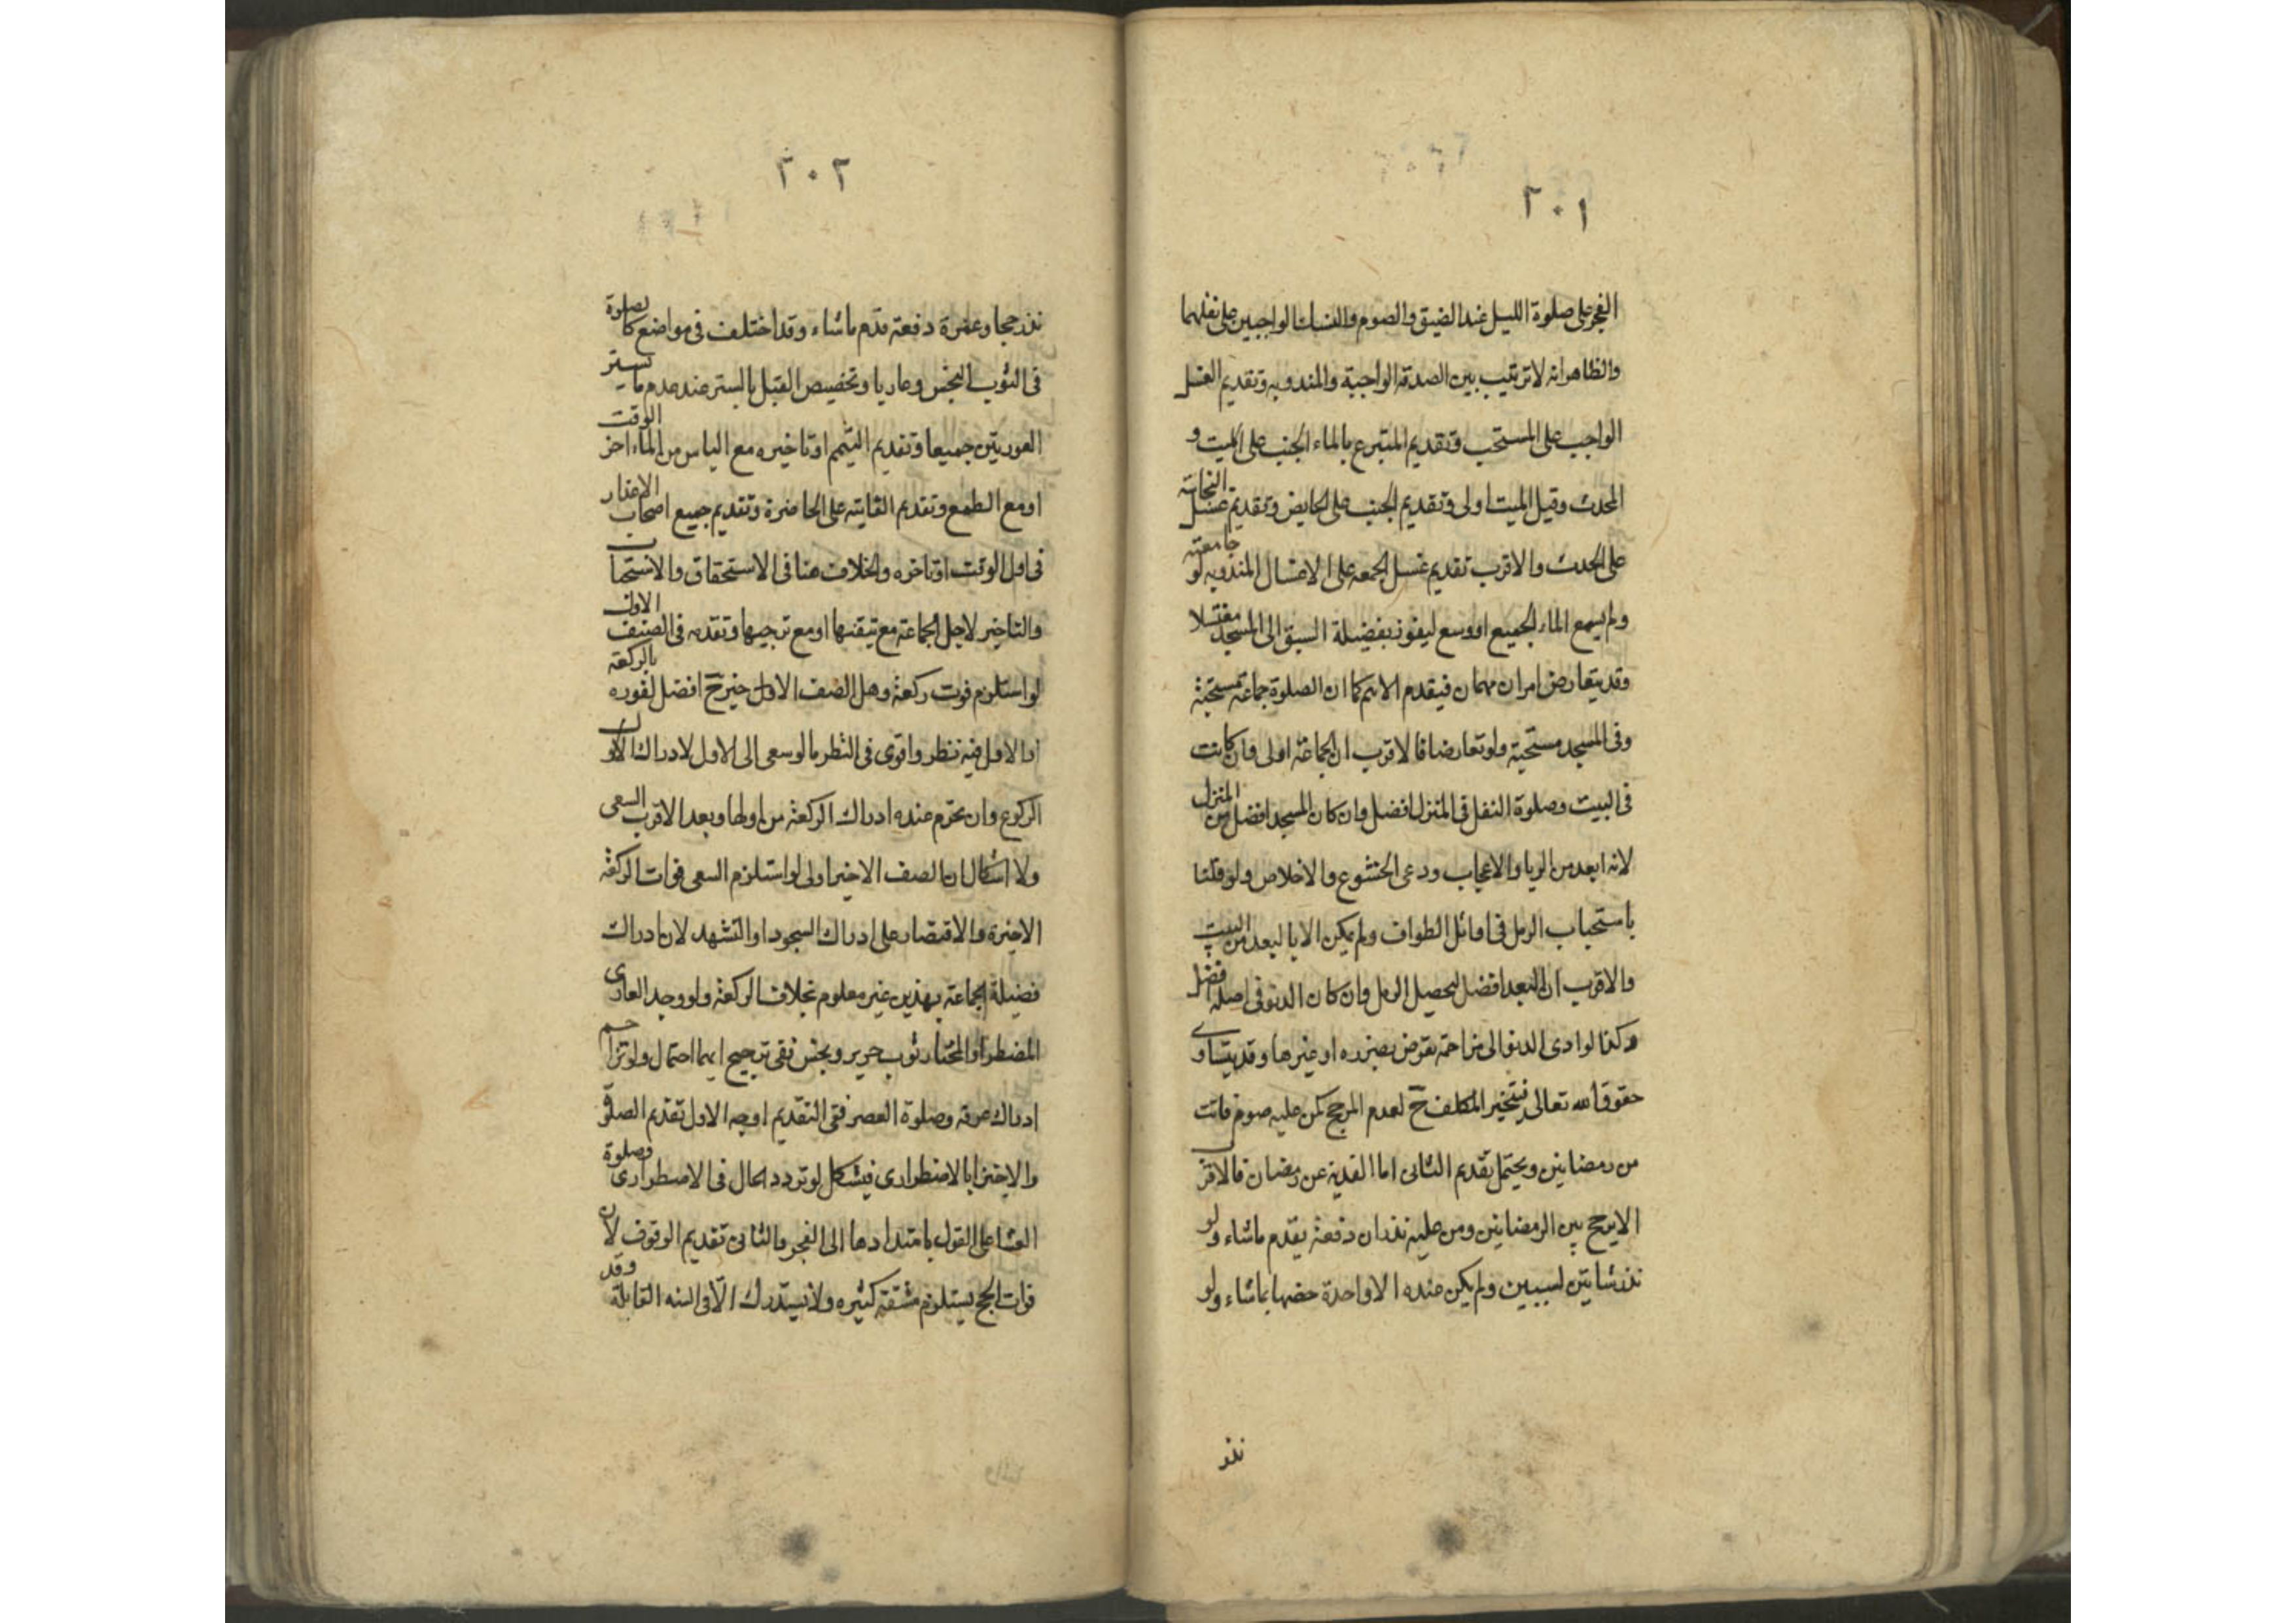 ٢٠١
الفجر على صلوة الليل عند الضيق والصوم والنسك الواجبين على نفلهما
والظاهر انه لا ترتيب بين الصدقة الواجبة والمندوبه وتقديم الغسل
الواجب على المستحب وتقديم المتبرع بالماء الجنب على الميت و
المحدث وقيل الميت اولى وتقديم الجنب على الحايض وتقديم غسل النجاسة
على الحدث والاقرب تقديم غسل الجمعه على الاغسال المندوبه لو جامعته
ولم يسع الماء الجميع او وسع ليفوز بفضيلة السبق الى المسجد مغتسلا
وقد يتعارض امران مهمان فيقدم الاهم كما ان الصلوة جماعة مستحبة
وفى المسجد مستحبة ولو تعارضا فالاقرب ان الجماعة اولى وان كانت
فى البيت وصلوة النفل فى المنزل افضل وان كان المسجد افضل من المنزل
لانه ابعد من الريا والاعجاب ودعى الخشوع والاخلاص ولو قلنا
باستحباب الرمل فى اوائل الطواف ولم يكن الا بالبعد من البيت
والاقرب ان البعد افضل لتحصيل الرمل وان كان الدنو فى اصله افضل
وكذا لو ادى الدنو الى مزاحمة تعرض بضرره او غيرها وقد يتساوى
حقوق الله تعالى فيتخير المكلف ح لعدم المرجح كمن عليه صوم فائت
من رمضانين ويحتمل تقديم الثانى اما الفدية عن رمضان فالاقرب
الا ترجح بين الرمضانين ومن عليه نذران دفعة يقدم ماشاء ولو
نذر شاتين لسببين ولم يكن عنده الا واحدة خصها بماشاء ولو
نذر
٢٠٢
نذر حجا وعمرة دفعة قدم ماشاء وقد اختلف فى مواضع كالصلوة
فى الثوب النجس وعاريا وتخصيص القبل بالستر عند عدم ما يستر
العورتين جميعا وتقديم التيمم او تاخيره مع الياس من الماء اخر الوقت
او مع الطمع وتقديم الفايته على الحاضرة وتقديم جميع اصحاب الاعذار
فى اول الوقت او تاخره والخلاف هنا فى الاستحقاق والاستحباب
والتاخير لاجل الجماعة مع تيقنها او مع ترجيها وتقدمه فى الصف الاول
لو استلزم فوت ركعة وهل الصف الاول خير ح افضل لفوره بالركعة
اما الاول فيه نظر واقوى فى النظر ما لو سعى الى الاول لادراك الاول
الركوع وان تحرم عنده ادراك الركعة من اولها وبعد الاقرب السعى
ولا اشكال ان الصف الاخير اولى لو استلزم السعى فوات الركعة
الاخيرة والاقتصار على ادراك السجود او التشهد لان ادراك
فضيلة الجماعة بهذين غير معلوم بخلاف الركعة ولو وجد العارى
المضطر او المختار ثوب حرير ونجس ففى ترجيح ايهما احتمال ولو تزاحم
ادراك عرفه وصلوة العصر ففى التقديم اوجه الاول تقديم الصلوة
والاجتزا بالاضطرارى فيشكل لو تردد الحال فى الاضطرارى وصلوة
العشا على القول بامتدادها الى الفجر والثانى تقديم الوقوف لان
فوات الحج يستلزم مشقة كثيره ولا يستدرك الا فى السنه القابلة وقد